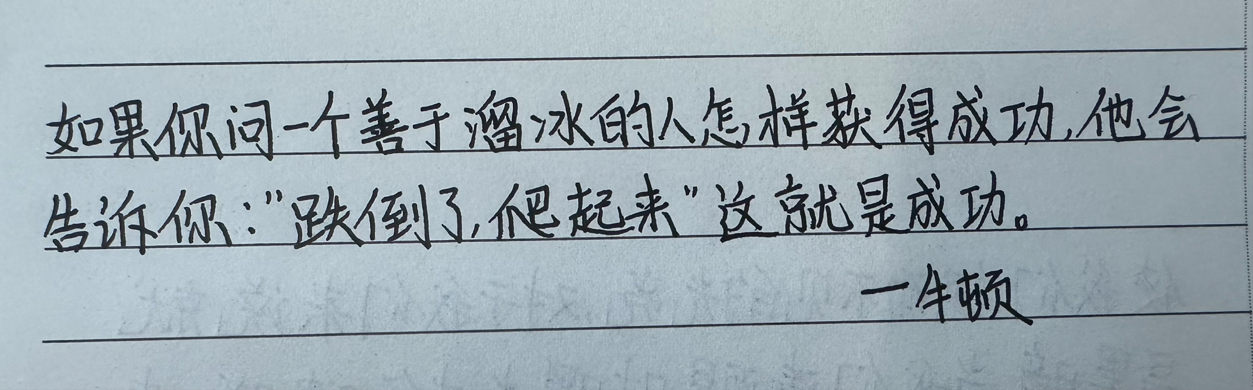 如果你问一个善于溜冰的人怎样获得成功,他会
告诉你:"跌倒了,爬起来"这就是成功。
一牛顿